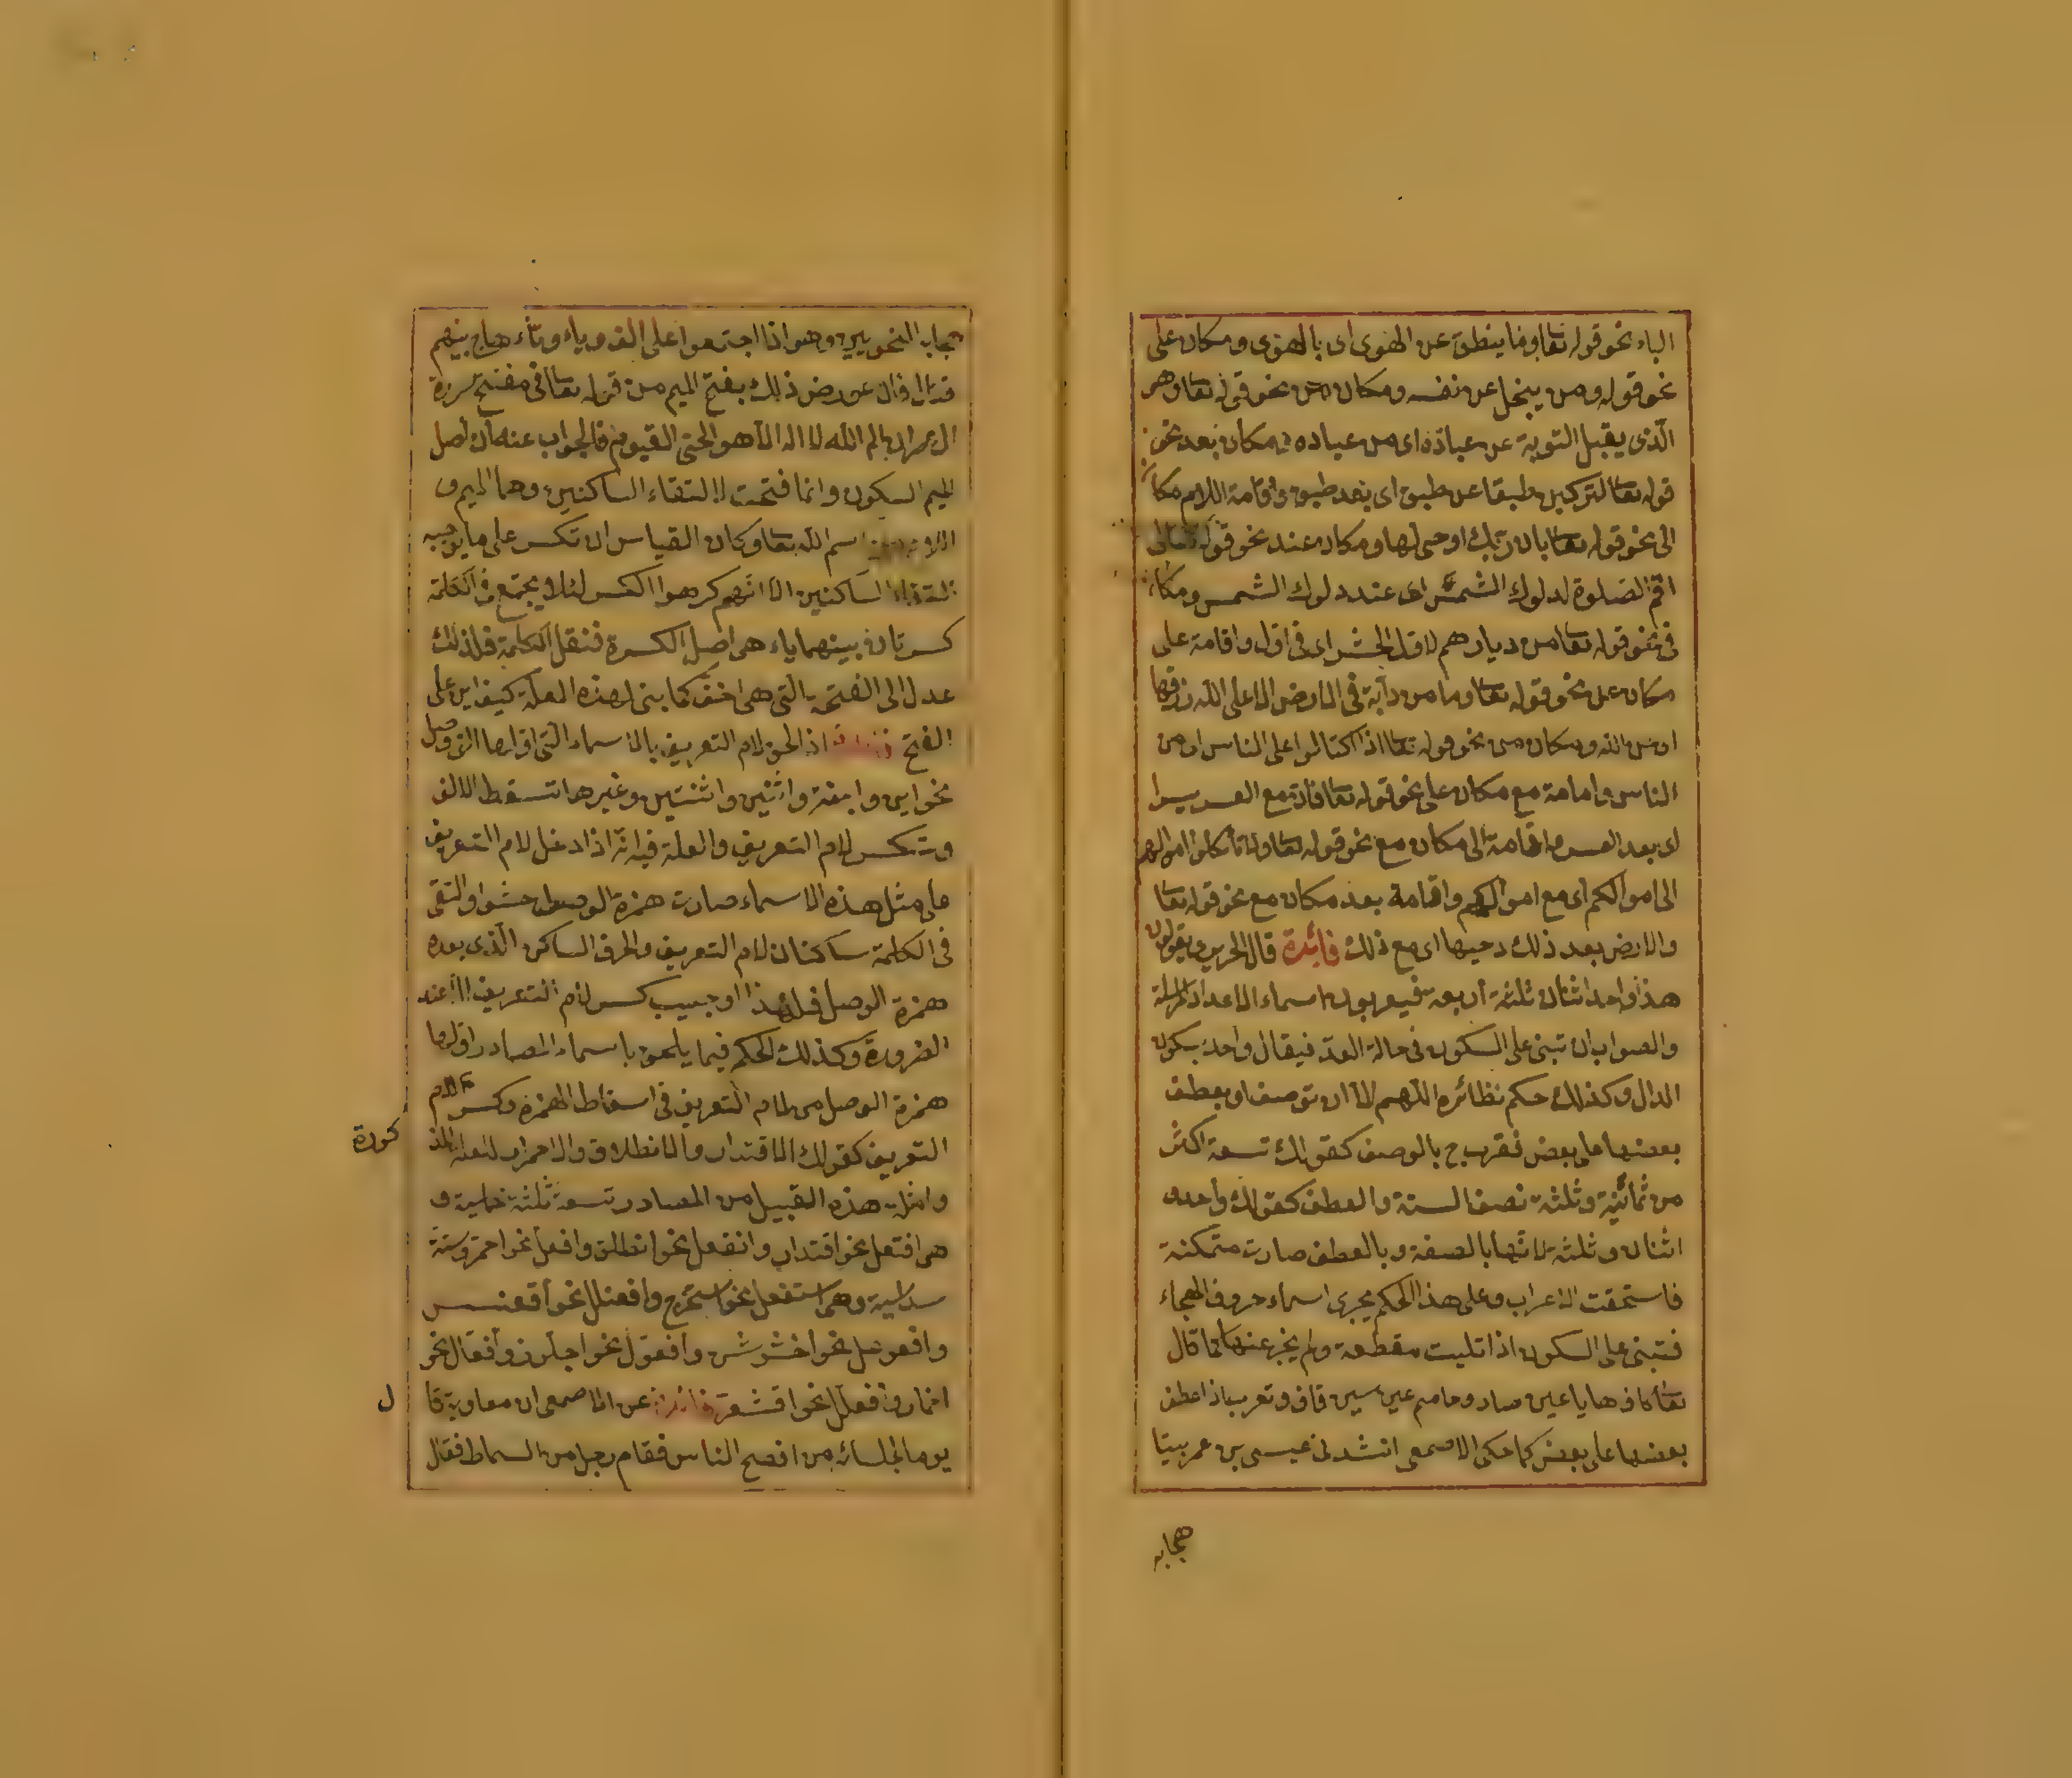 الباء نحو قوله تعا وما ينطق عن الهوى اى بالهوى ومكان على
نحو قوله ومن يبخل عن نفسه ومكان من نحو قوله تعا وهو
الّذى يقبل التوبة عن عباده اى من عباده ومكان بعد نحو
قوله تعا لتركبن طبقا عن طبق اى بعد طبق واقامة اللام مكان
الى نحو قوله تعا بان ربّك اوحى لها ومكان عند نحو قوله تعالى
اقم الصلوة لدلوك الشمس اى عند دلوك الشمس ومكان
فى نحو قوله تعا من ديارهم لاول الحشر اى فى اول واقامة على
مكان من نحو قوله تعا وما من دآبة فى الارض الا على الله رزقها
اى من الله ومكان من نحو قوله تعا اذا اكتالوا على الناس اى من
الناس واقامة مع مكان على نحو قوله تعا فان مع العسر يسرا
اى بعد العسر واقامة الى مكان مع نحو قوله تعا ولا تأكلوا اموالهم
الى اموالكم اى مع اموالكم واقامة بعد مكان مع نحو قوله تعا
والارض بعد ذلك دحيها اى مع ذلك فائدة قال الحريرى يقولون
هذا واحد اثنان ثلثة اربعة فيعربون اسماء الاعداد المرسلة
والصواب ان تبنى على السكون فى حالة العدّ فيقال واحد بسكون
الدال وكذلك حكم نظائره اللّهم الا ان توصف او يعطف
بعضها على بعض فتعرب ح بالوصف كقولك تسعة اكثر
من ثمانية وثلثة نصف الستة والعطف كقولك واحد و
اثنان وثلثة لانها بالصفة وبالعطف صارت متمكنة
فاستحقت الاعراب وعلى هذا الحكم يجرى اسماء حروف الهجاء
فتبنى على السكون اذا تليت مقطعة ولم يخبر عنها كما قال
تعا كاف ها يا عين صاد وحاميم عين سين قاف وتعرب اذا عطف
بعضها على بعض كما حكى الاصمعى انشدنى عيسى بن عمر بيتا
هجابه
هجابه النحويين وهو اذا اجتمعوا على الف وياء وتاء هاج بينهم
قتال فان عورض ذلك بفتح الميم من قوله تعا فى مفتتح سورة
ال عمران الم الله لا اله الا هو الحى القيوم فالجواب عنه ان اصل
الميم السكون وانما فتحت لالتقاء الساكنين وهما الميم و
اللام من اسم الله تعا وكان القياس ان تكسر على ما يوجبه
التقاء الساكنين الا انهم كرهوا الكسر لئلا يجتمع فى الكلمة
كسرتان بينهما ياء هى اصل الكسرة فتثقل الكلمة فلذلك
عدل الى الفتحة التى هى اخف كما بنى لهذه العلة كيف واين على
الفتح فائدة اذا لحق لام التعريف بالاسماء التى اولها الف وصل
نحو ابن وابنة واثنين واثنتين وغيرها تسقط الالف
وتكسر لام التعريف والعلة فيه انه اذا دخل لام التعريف
على مثل هذه الاسماء صارت همزة الوصل حشوا والتقى
فى الكلمة ساكنان لام التعريف والحرف الساكن الّذى بعده
همزة الوصل فلهذا اوجب كسر لام التعريف الا عند
الضرورة وكذلك الحكم فيما يلحق باسماء المصادر اولها
همزة الوصل من لام التعريف فى اسقاط الهمزة وكسر لام
التعريف كقولك الاقتدار والانطلاق والاحمرار للعلة المذ
كورة
وامثلة هذه القبيل من المصادر تسعة ثلثة خماسية و
هى افتعل نحو اقتدار وانفعل نحو انطلق وافعل نحو احمر وستة
سداسية وهى استفعل نحو استخرج وافعنلل نحو اقعنسس
وافعوعل نحو اخشوشن وافعول نحو اجلوذ وافعال نحو
احمار وافعلل نحو اقشعر فائدة عن الاصمعى ان معاوية قا
ل
يوما لجلسائه من افصح الناس فقام رجل من السماط فقال